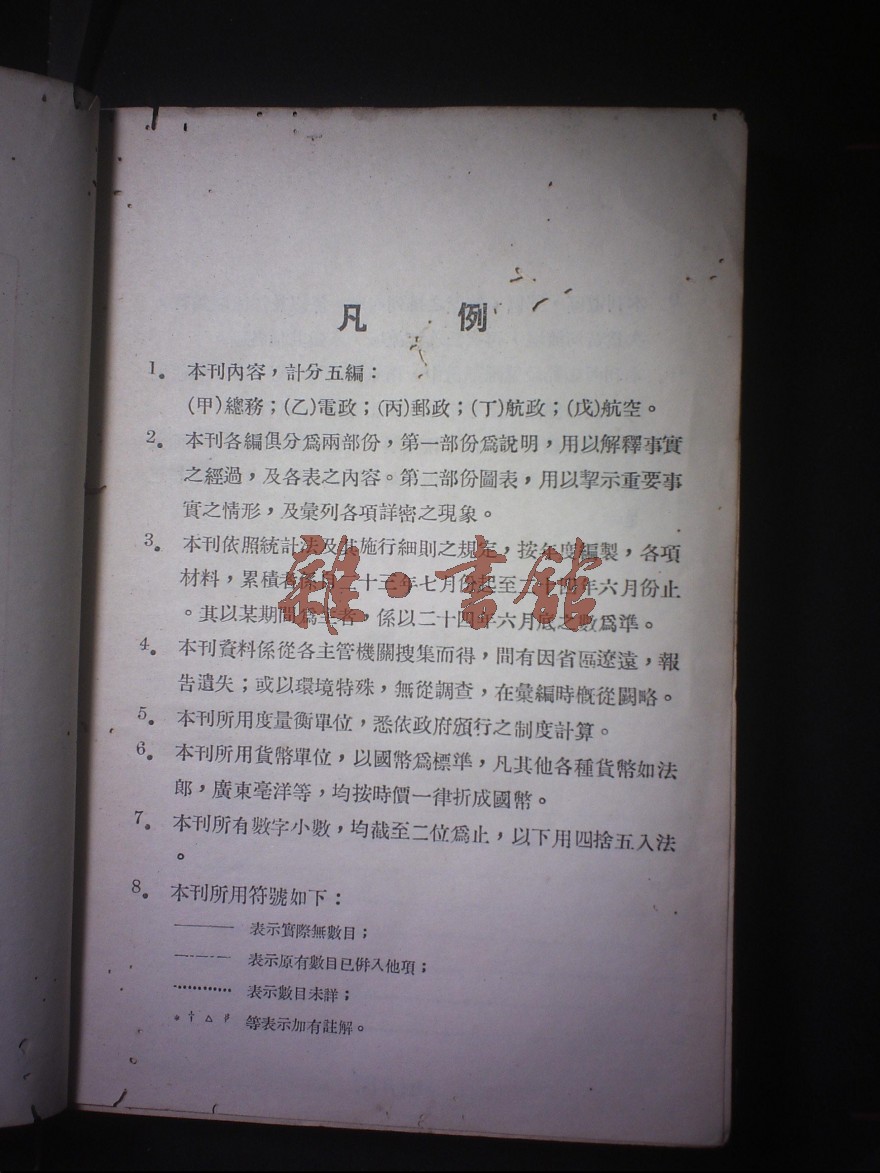 凡例
1。本刊內容，計分五編：
(甲)總務；(乙)電政；(丙)郵政；(丁)航政；(戊)航空。
2。本刊各編俱分爲兩部份，第一部份爲說明，用以解釋事實
之經過，及各表之內容。第二部份圖表，用以挈示重要事
實之情形，及彙列各項詳密之現象。
3。本刊依照統計法及其施行細則之規定，按年度編製，各項
材料，累積者係自二十三年七月份起至二十四年六月份止
。其以某期間爲主者，係以二十四年六月底之數爲準。
4。本刊資料係從各主管機關搜集而得，間有因省區遼遠，報
告遺失；或以環境特殊，無從調查，在彙編時慨從闕略。
5。本刊所用度量衡單位，悉依政府頒行之制度計算。
6。本刊所用貨幣單位，以國幣爲標準，凡其他各種貨幣如法
郎，廣東毫洋等，均按時價一律折成國幣。
7。本刊所有數字小數，均截至二位爲止，以下用四捨五入法
。
8。本刊所用符號如下：
—— 表示實際無數目；
—·—·— 表示原有數目已併入他項；
………… 表示數目未詳；
* † △ 等表示加有註解。
雜·書館